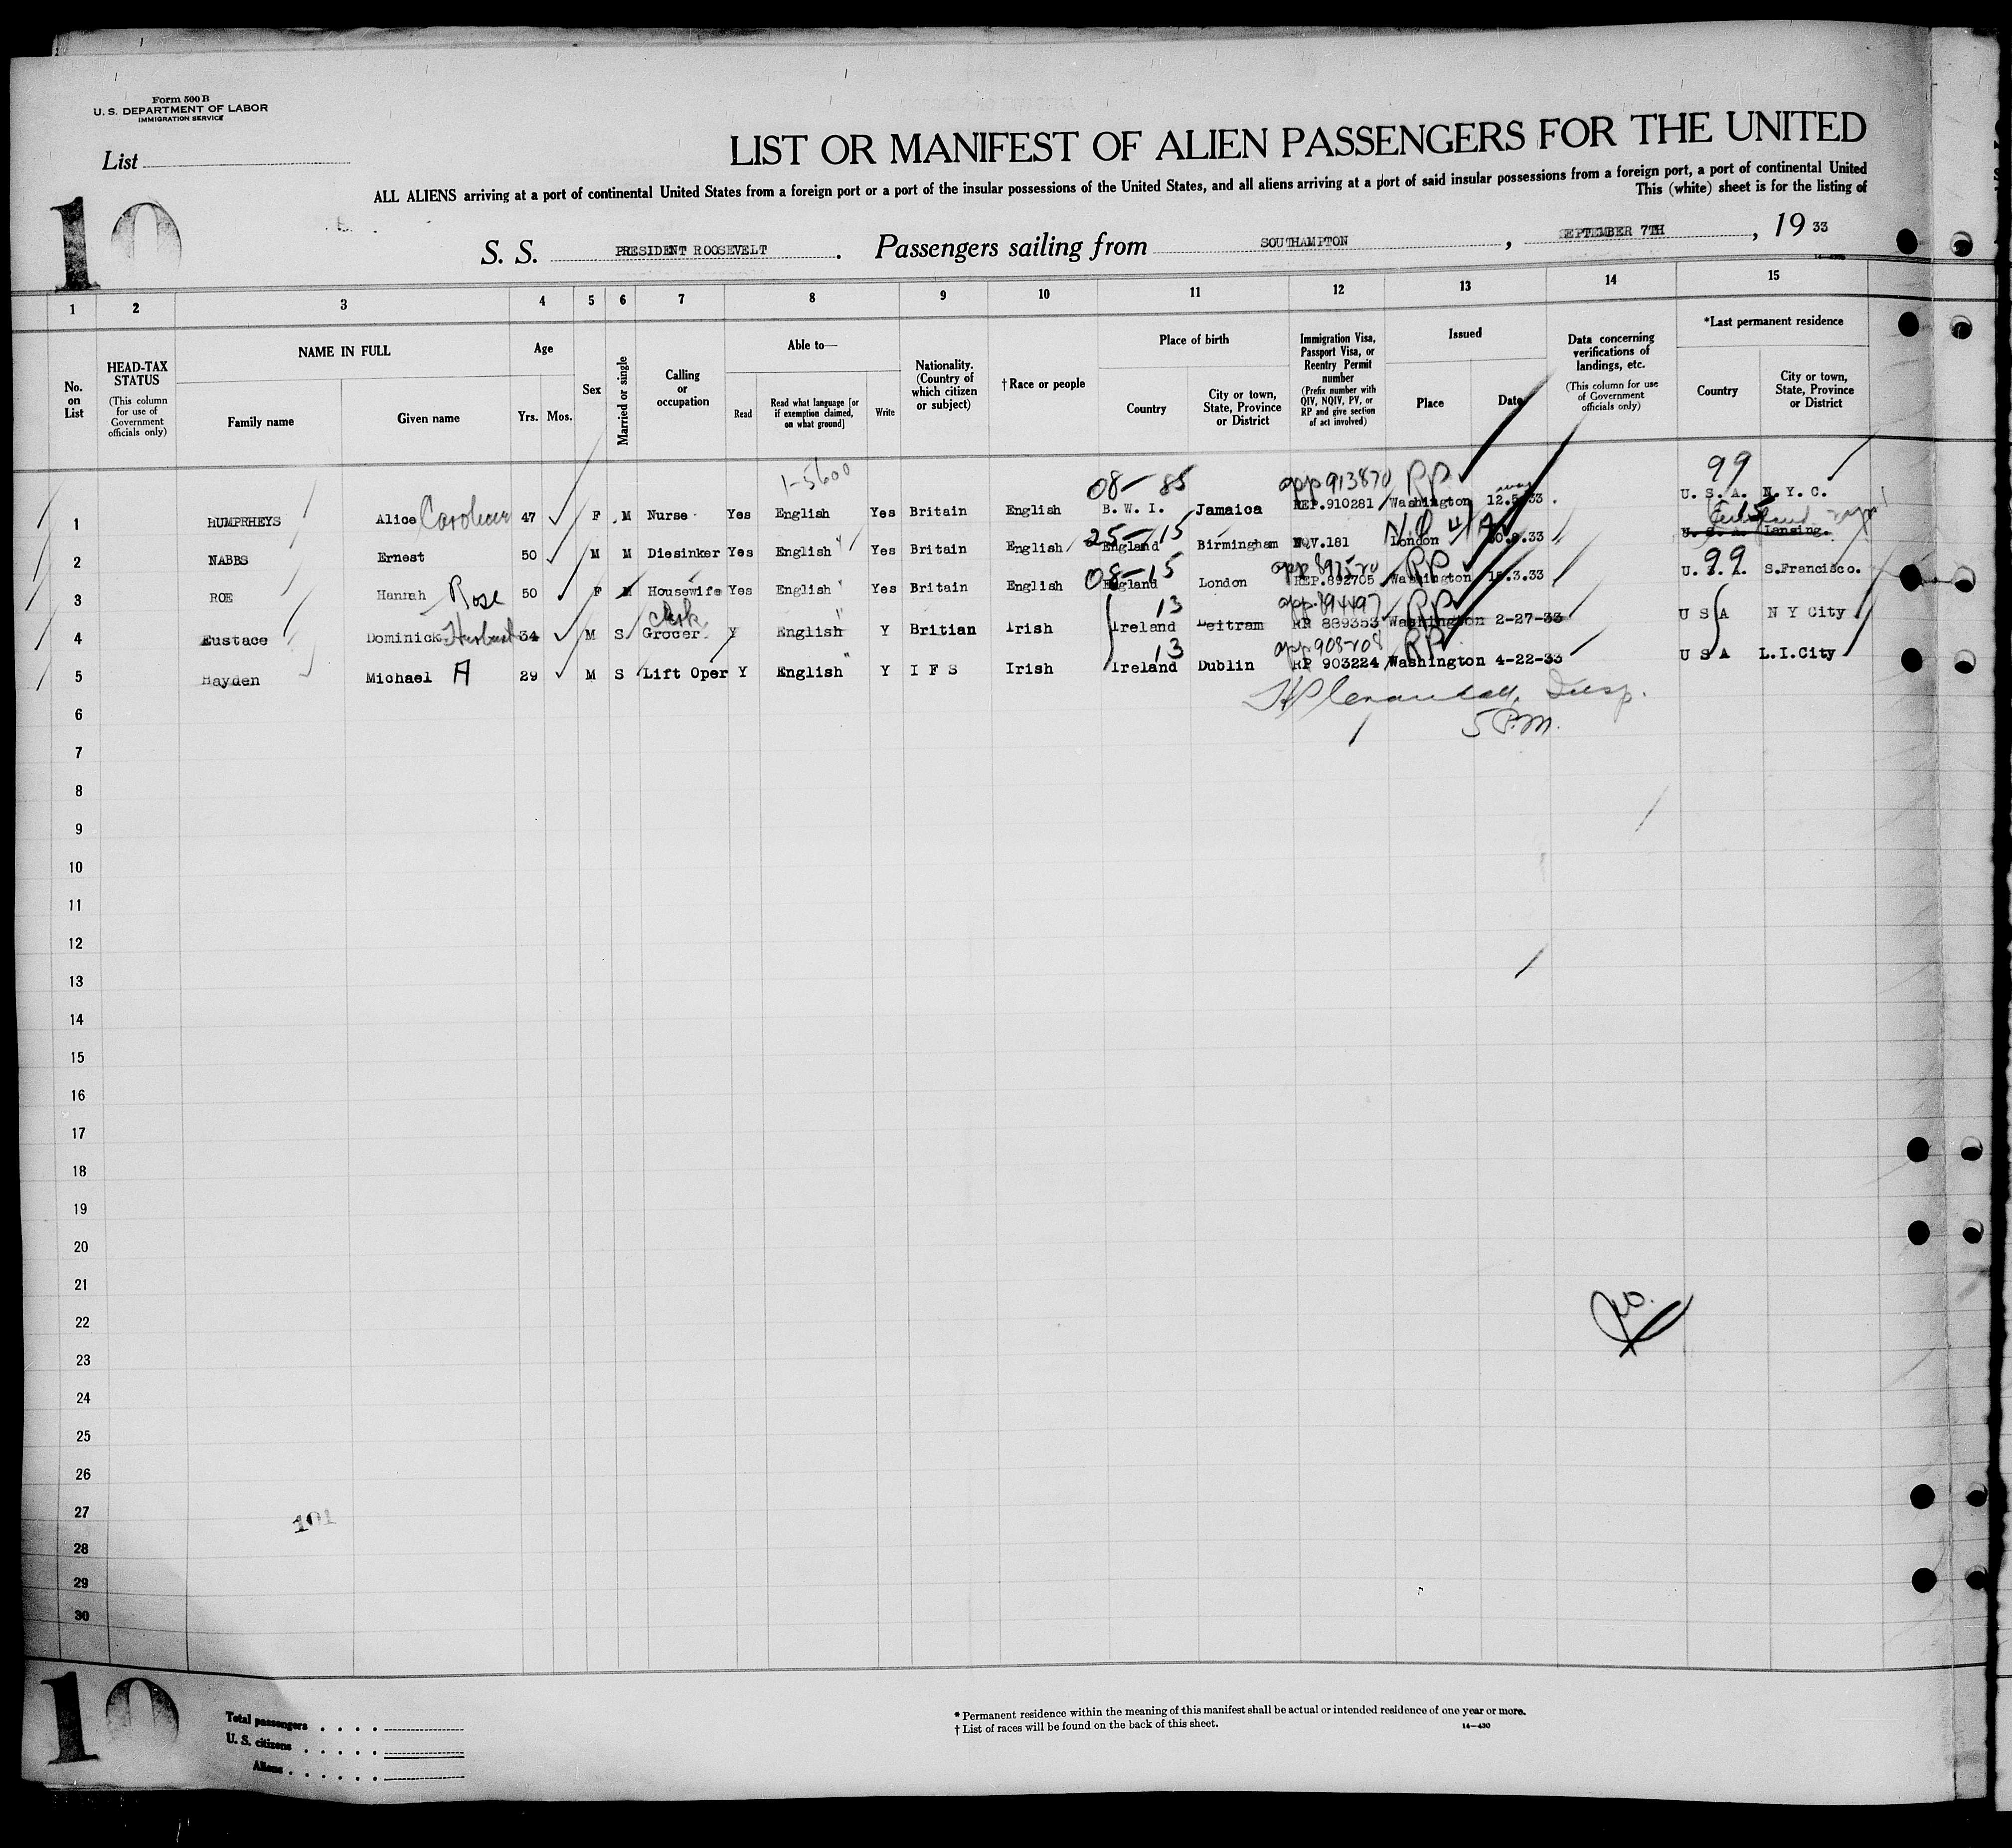 Form 500 B
U. S. DEPARTMENT OF LABOR
IMMIGRATION SERVICE
List
10
LIST OR MANIFEST OF ALIEN PASSENGERS FOR THE UNITED
ALL ALIENS arriving at a port of continental United States from a foreign port or a port of the insular possessions of the United States, and all aliens arriving at a port of said insular possessions from a foreign port, a port of continental United
This (white) sheet is for the listing of
S. S. PRESIDENT ROOSEVELT. Passengers sailing from SOUTHAMPTON, SEPTEMBER 7TH, 19 33
1 2 3 4 5 6 7 8 9 10 11 12 13 14 15
No. on List
HEAD-TAX STATUS (This column for use of Government officials only)
NAME IN FULL
Family name
Given name
Age
Yrs. Mos.
Sex
Married or single
Calling or occupation
Able to—
Read
Read what language [or if exemption claimed, on what ground]
Write
Nationality. (Country of which citizen or subject)
†Race or people
Place of birth
Country
City or town, State, Province or District
Immigration Visa, Passport Visa, or Reentry Permit number (Prefix number with QIV, NQIV, PV, or RP and give section of act involved)
Issued
Place
Date
Data concerning verifications of landings, etc. (This column for use of Government officials only)
*Last permanent residence
Country
City or town, State, Province or District
1-5600 08- 85 app 913870 RP 99
1 HUMPHREYS Alice 47 F M Nurse Yes English Yes Britain English B. W. I. Jamaica REP.910281 Washington 12.5.33 U. S. A. N. Y. C.
25-15
2 NABBS Ernest 50 M M Diesinker Yes English Yes Britain English England Birmingham London U. S. A. Lansing.
08-15 RP 99
3 ROE Hannah Rose 50 F M Housewife Yes English Yes Britain English England London REP.892705 Washington U. S. A. S.Francisco.
Clerk 13 app 894497 RP
4 Eustace Dominick 34 M S Grocer Y English Y Britian Irish Ireland Leitram RP 889353 Washington 2-27-33 U S A N Y City
13 app 908208 RP
5 Hayden Michael A 29 M S Lift Oper Y English Y I F S Irish Ireland Dublin RP 903224 Washington 4-22-33 U S A L.I.City
Insp.
5 P.M.
6
7
8
9
10
11
12
13
14
15
16
17
18
19
20
21
22
23
24
25
26
27
101
28
29
30
10
Total passengers
U. S. citizens
Aliens
* Permanent residence within the meaning of this manifest shall be actual or intended residence of one year or more.
† List of races will be found on the back of this sheet. 14—430